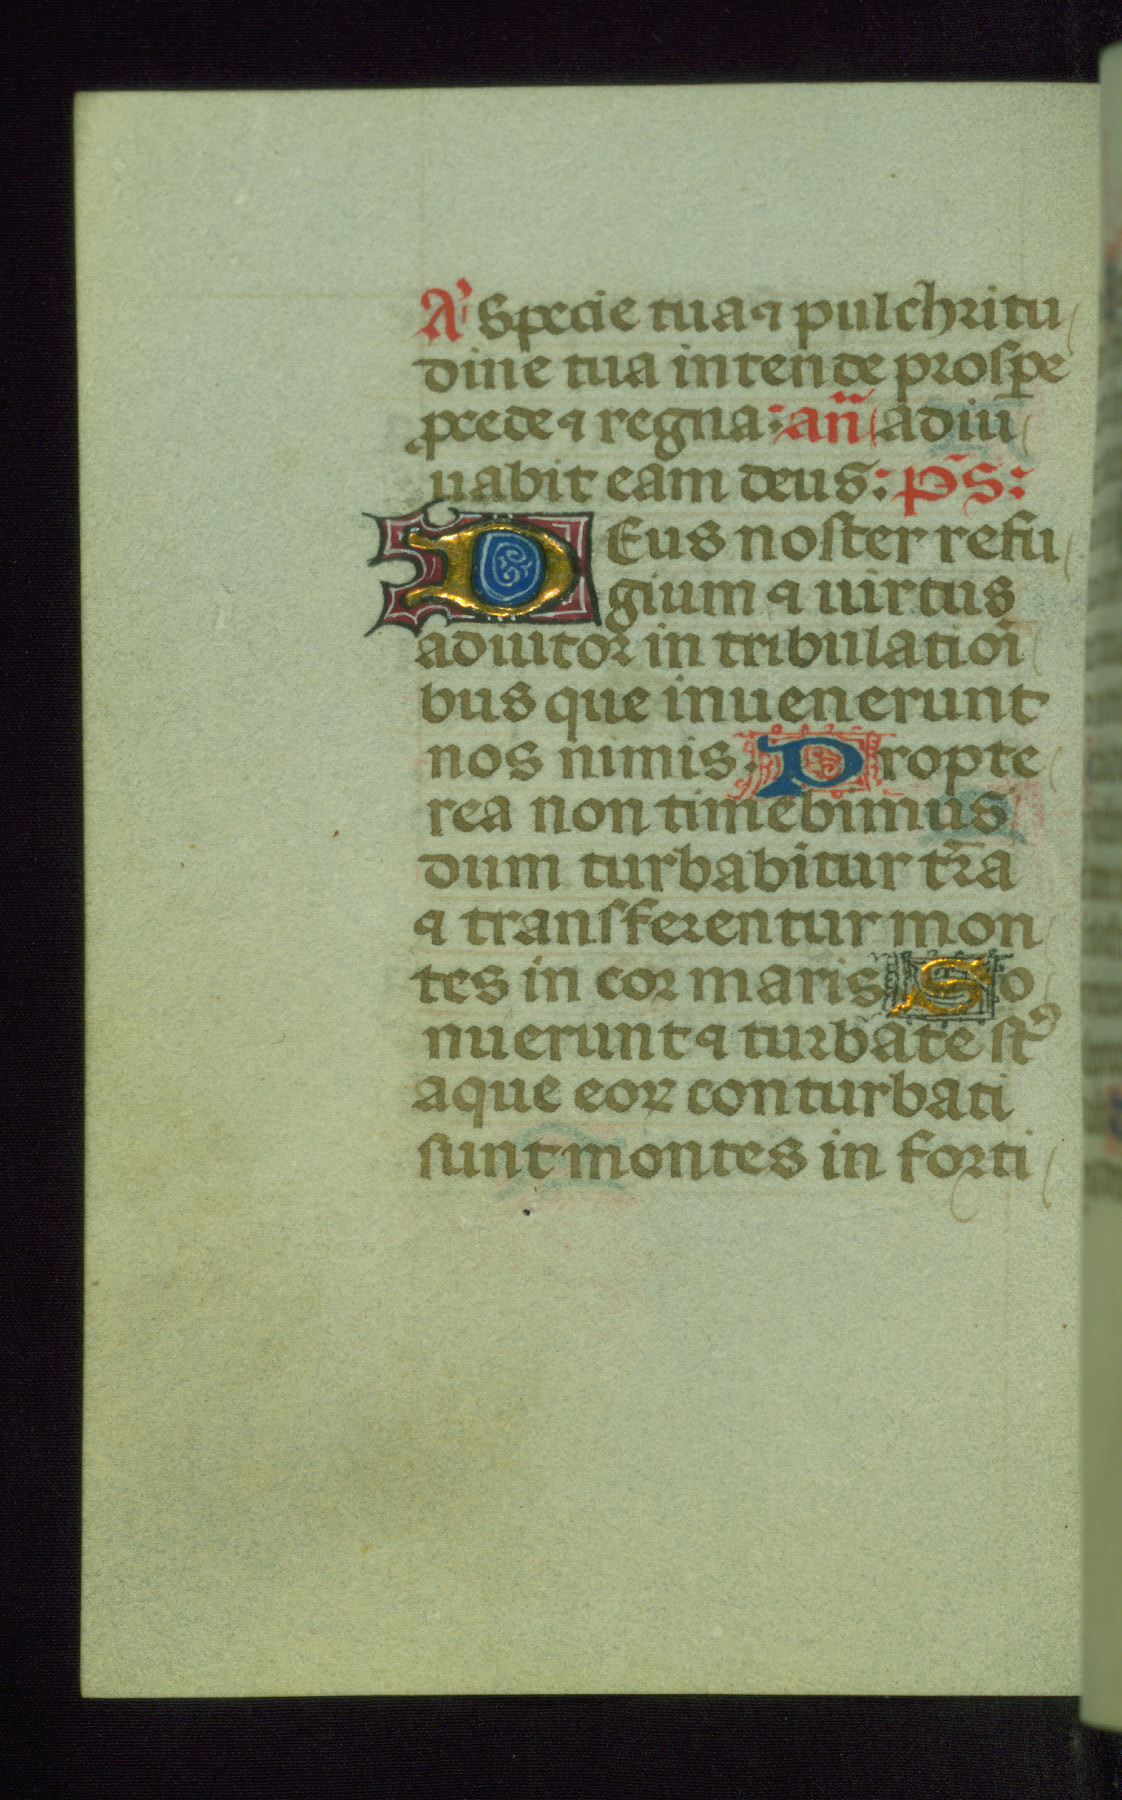 A' Specie tua ⁊ pulchritu
dine tua intende prospe
ꝓcede ⁊ regna: an̄ adiu
uabit eam deus: p̄s:
DEus noster refu
gium ⁊ uirtus
adiutor in tribulatioī
bus que inuenerunt
nos nimis. Propte
rea non timebimus
dum turbabitur tr̄a
⁊ transferentur mon
tes in cor maris So
nuerunt ⁊ turbate st̄
aque eoꝝ conturbati
sunt montes in forti